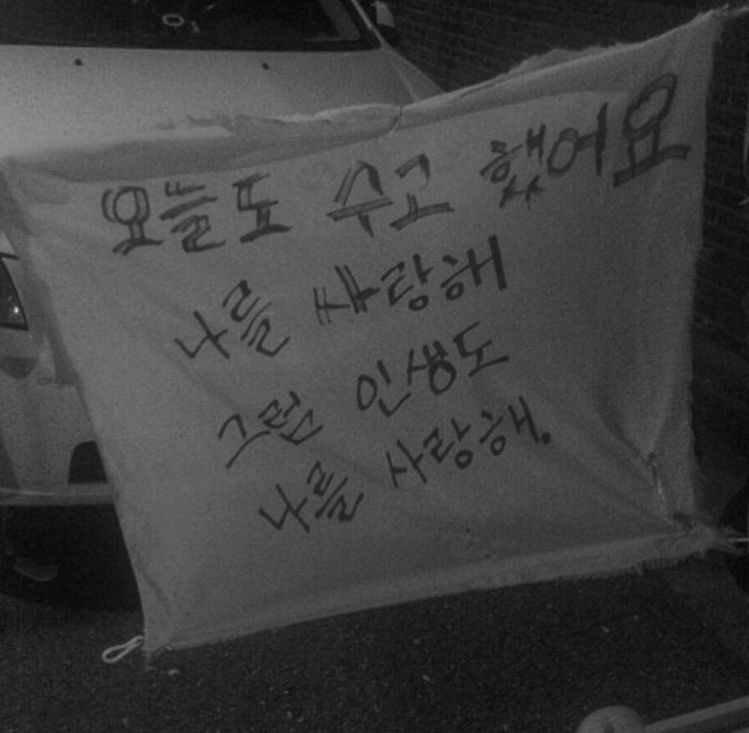 오늘도 수고 했어요
나를 사랑해
그럼 인생도
나를 사랑해.